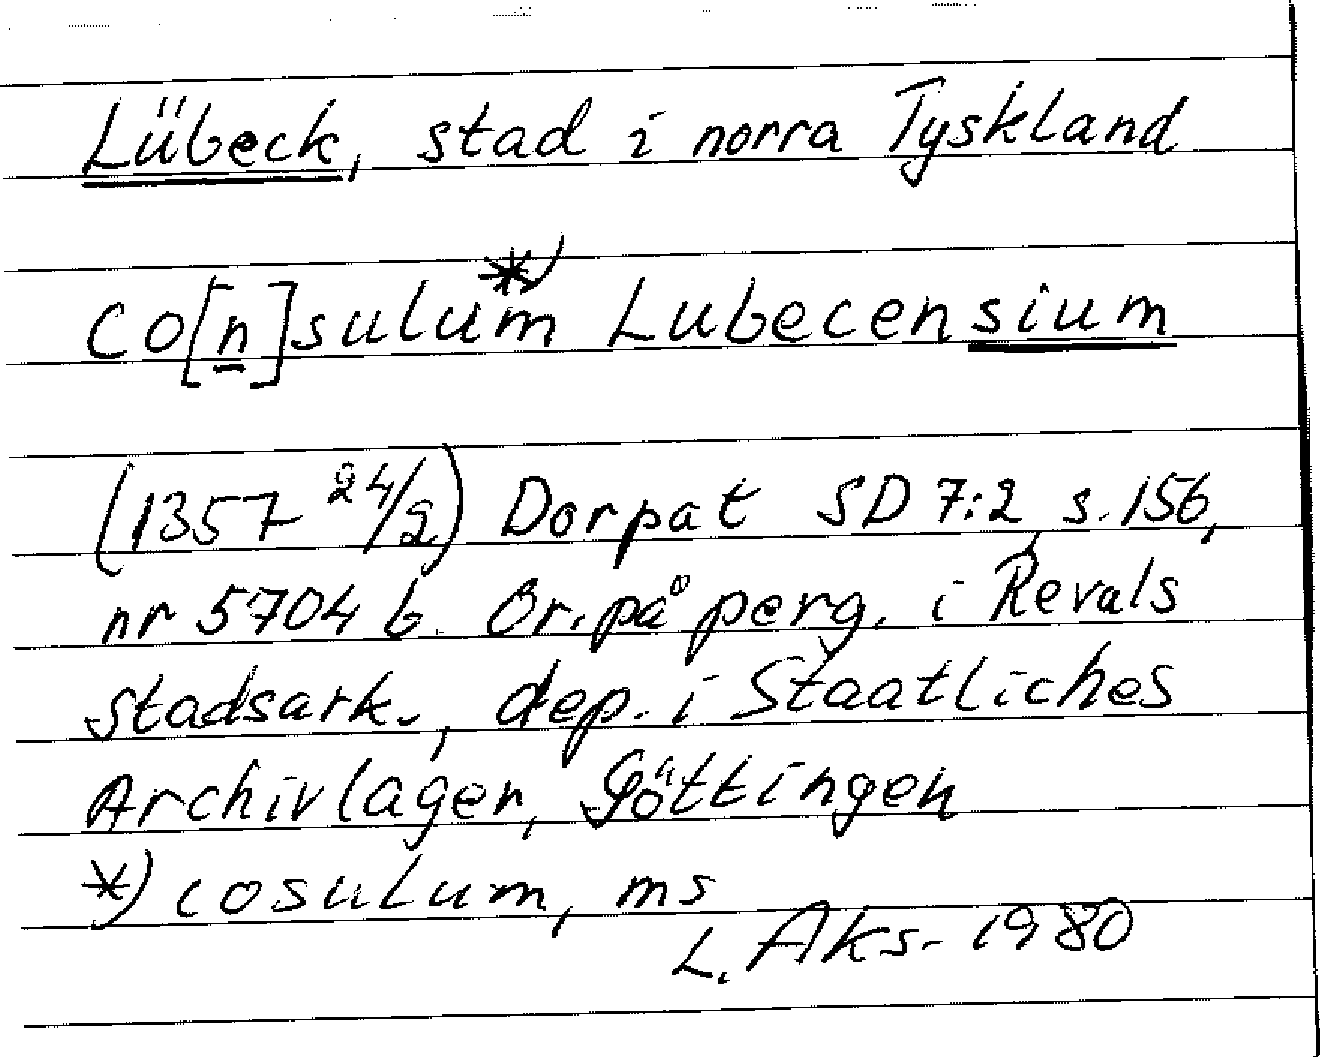 Lübeck, stad i norra Tyskland
Co[n]sulum*) Lubecensium
(1357 24/2) Dorpat SD 7:2 s. 156,
nr 5704 b. Or. på perg. i Revals
stadsark., dep. i Staatliches
Archivlager, Göttingen
*) cosulum, ms
L. Aks- 1980